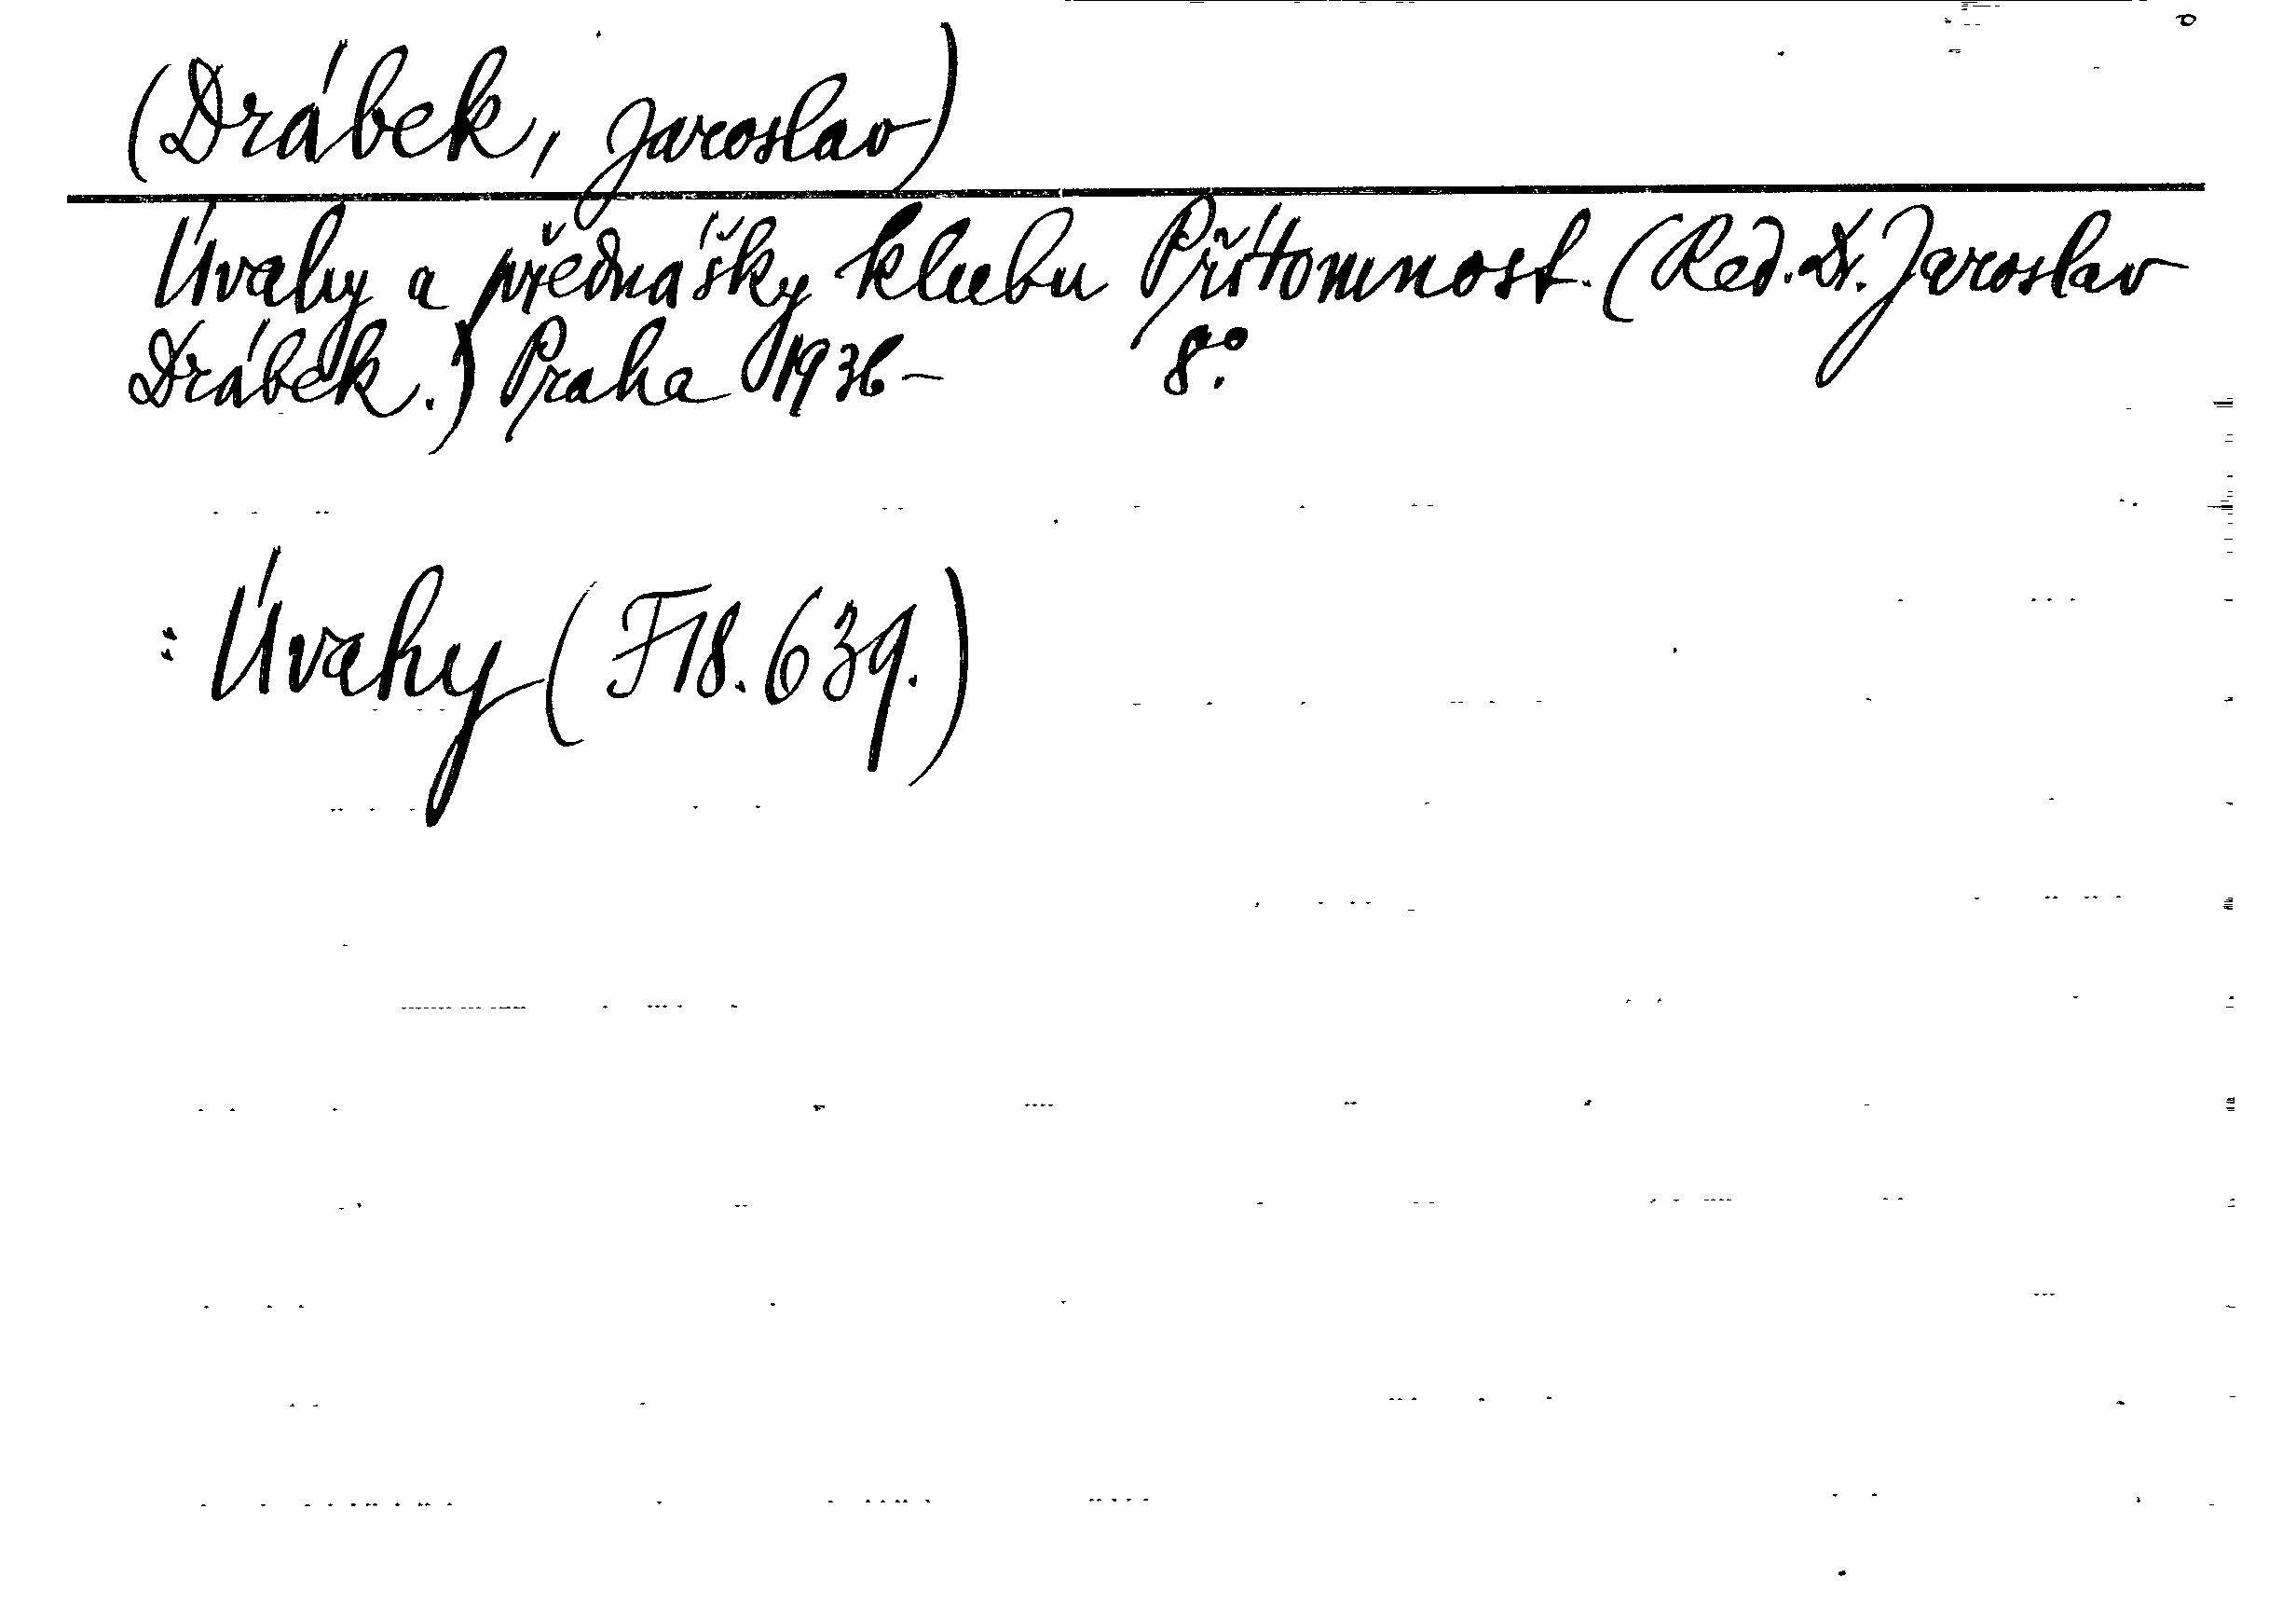 (Drábek, Jaroslav)
Úvahy a přednášky klubu Přítomnost. (Red. Dr. Jaroslav
Drábek.) Praha 1936- 8°.
: Úvahy (F18.639.)